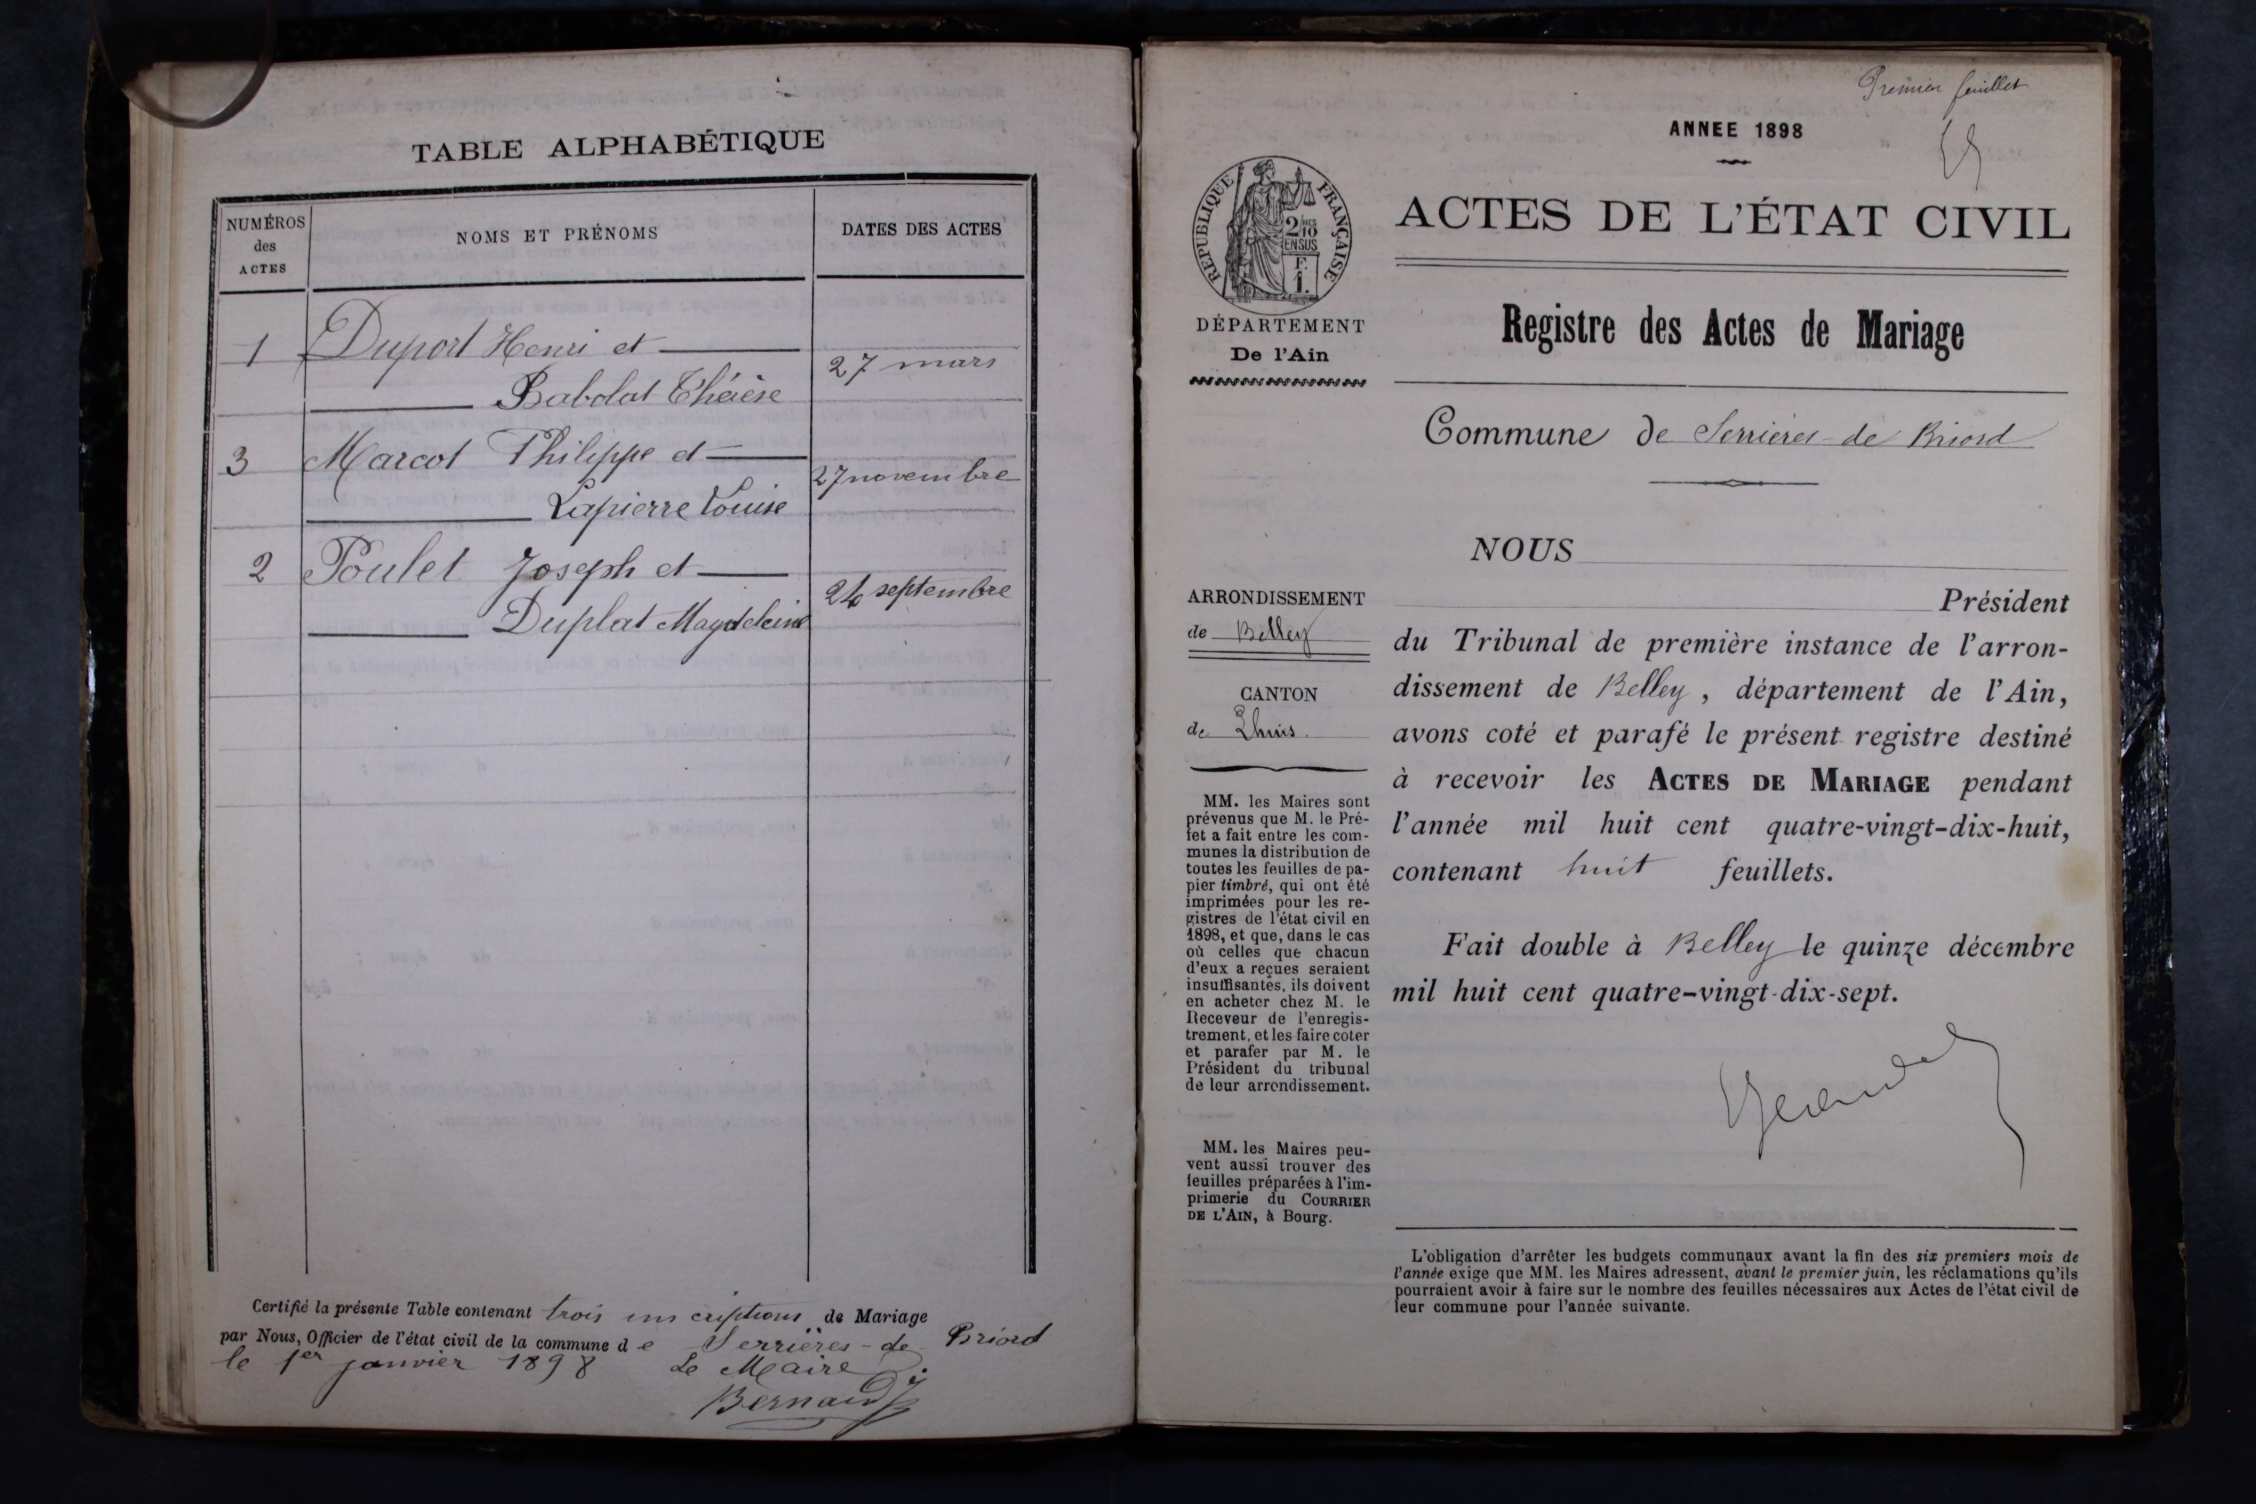 TABLE ALPHABÉTIQUE
NUMÉROS
des
ACTES
NOMS ET PRÉNOMS
DATES DES ACTES
1 Duport Henri et
Babolat Thérèse
27 mars
3 Marcot Philippe et
Lapierre Louise
27 novembre
2 Poulet Joseph et
Duplat Magdeleine
24 septembre
Certifié la présente Table contenant trois inscriptions de Mariage
par Nous, Officier de l'état civil de la commune de Serrières-de Briord
le 1er janvier 1898 Le Maire
Bernard
Premier feuillet
ANNEE 1898
ACTES DE L'ÉTAT CIVIL
RÉPUBLIQUE FRANÇAISE
2/10
EN SUS
F.
1.
DÉPARTEMENT
De l'Ain
Registre des Actes de Mariage
Commune de Serrières-de Briord
ARRONDISSEMENT
de Belley
CANTON
de Lhuis.
MM. les Maires sont
prévenus que M. le Pré-
fet a fait entre les com-
munes la distribution de
toutes les feuilles de pa-
pier timbré, qui ont été
imprimées pour les re-
gistres de l'état civil en
1898, et que, dans le cas
où celles que chacun
d'eux a reçues seraient
insuffisantes, ils doivent
en acheter chez M. le
Receveur de l'enregis-
trement, et les faire coter
et parafer par M. le
Président du tribunal
de leur arrondissement.
MM. les Maires peu-
vent aussi trouver des
feuilles préparées à l'im-
primerie du COURRIER
DE L'AIN, à Bourg.
NOUS
Président
du Tribunal de première instance de l'arron-
dissement de Belley, département de l'Ain,
avons coté et parafé le présent registre destiné
à recevoir les ACTES DE MARIAGE pendant
l'année mil huit cent quatre-vingt-dix-huit,
contenant huit feuillets.
Fait double à Belley le quinze décembre
mil huit cent quatre-vingt-dix-sept.
L'obligation d'arrêter les budgets communaux avant la fin des six premiers mois de
l'année exige que MM. les Maires adressent, avant le premier juin, les réclamations qu'ils
pourraient avoir à faire sur le nombre des feuilles nécessaires aux Actes de l'état civil de
leur commune pour l'année suivante.